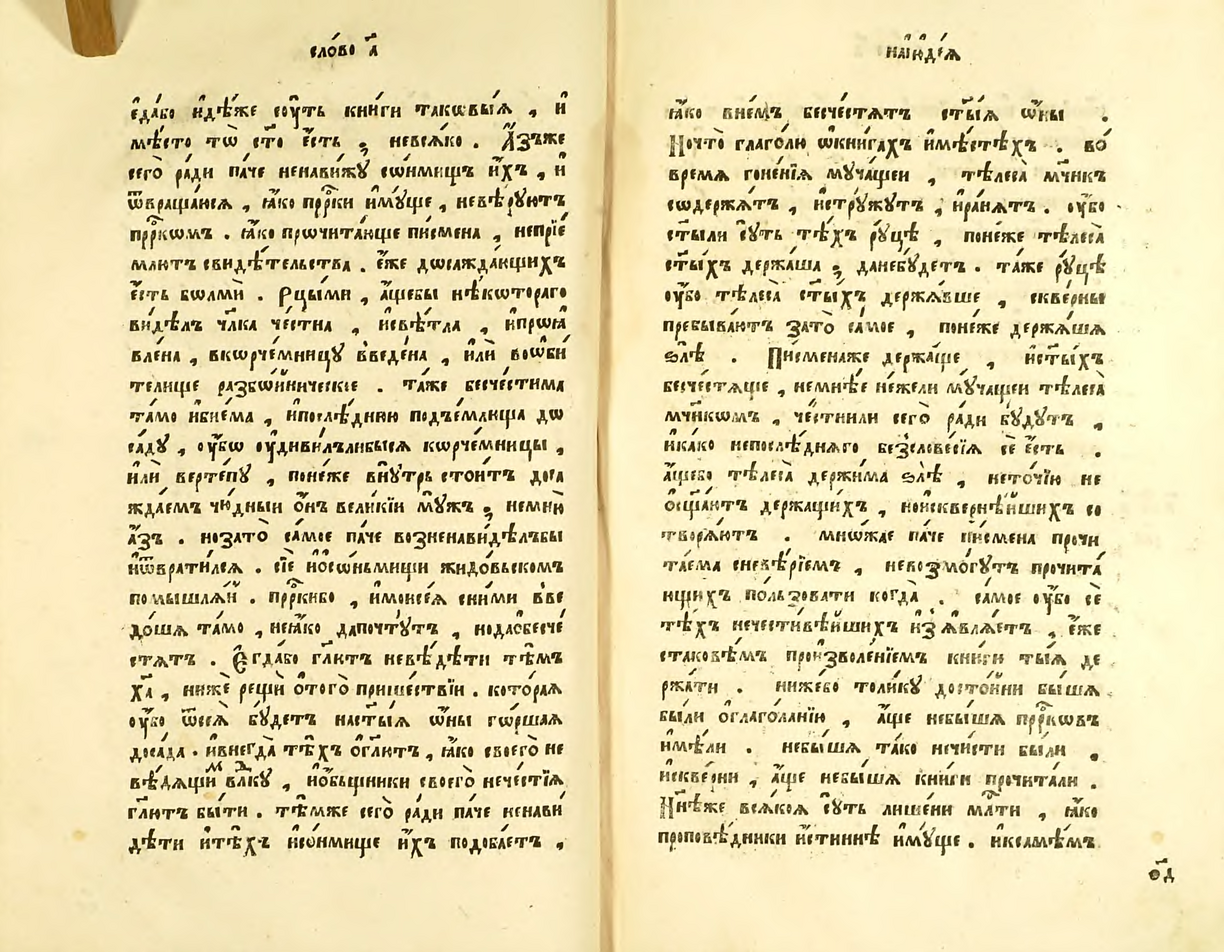 сло́во а҃
є҆да́бо и҆дѣ́же сѹ́ть кни́ги такѡвы́ѧ , и҆
мѣ́сто тѡ̀ ст҃о є҆́сть ; невсѧ́ко . А҆́зъже
сегѡ̀ ра́ди па́че ненави́жꙋ сѡ́нмищъ и҆́хъ , и҆
ѿвраща́юсѧ , ꙗ҆́ко прⷪ҇ро́ки и҆мꙋ́ще , невѣ́рꙋютъ
прⷪ҇ро́кѡмъ . ꙗ҆́ко прѡчита́юще писмена̀ , непрїе́
млютъ свидѣ́тельства . є҆́же дѡсажда́ющихъ
є҆́сть бѡ́лми . Рцы́ми , а҆́щебы нѣ́кѡтораго
ви́дѣлъ чл҃ка че́стна , и҆свѣ́тла , и҆прѡꙗ
вле́на , вкѡрче́мницꙋ введе́на , и҆лѝ вѡѡби́
телище разбѡ́йническїе . та́же бесче́стима
та́мо и҆бїе́ма , и҆послѣ́днюю подъе́млюща дѡ
са́дꙋ , ѹ҆́бѡ ѹ҆диви́лълибысѧ кѡрче́мницы ,
и҆лѝ верте́пꙋ , поне́же внꙋ́трь стои́тъ доса
жда́емъ чю́дныи ѻ҆́нъ вели́кїи мꙋ́жъ ; немню̀
а҆́зъ . нозато̀ са́мое па́че возненави́дѣлъбы
и҆ѿврати́лсѧ . сїѐ и҆ѻсѡ́ньмищи жидо́вьскомъ
помышлѧ́й . прⷪ҇ро́кибо , и҆моисе́ѧ сни́ми вве
до́шѧ та́мо , неꙗ҆́ко дапочтꙋ́тъ , нодаѻбесче
стѧ́тъ . Є҆гда́бо гл҃ютъ невѣ́дѣти тѣ́мъ
х҃а , ниже́ рещѝ ѻ҆того̀ прише́ствїи . кото́раѧ
ѹ҆́бо ѿсеѧ̀ бꙋ́детъ наст҃ы́ѧ ѡ҆́ны гѡ́ршаѧ
доса́да . и҆внегда̀ тѣ́хъ ѻ҆гл҃ютъ , ꙗ҆́ко своего̀ не
вѣ́дѧщи влⷣкꙋ , и҆ѻ҆́бьщники своего̀ нече́стїѧ
гл҃ютъ бы́ти . тѣ́мже сего̀ ра́ди па́че ненави́
дѣти и҆тѣ́хъ и҆со́нмище и҆́хъ подоба́етъ ,
наїꙋде́ѧ
ꙗ҆́ко вне́мъ бесче́стѧтъ ст҃ы́ѧ ѡ҆́ны .
Но́что глаго́лю ѡ҆кни́гахъ и҆мѣ́стѣхъ . во́
времѧ гоне́нїѧ мꙋ́чащеи , тѣлеса̀ мч҃нкъ
сѡдержа́тъ , и҆стрꙋ́жꙋтъ , и҆ранѧ́тъ . ѹ҆́бо
ст҃ыли сꙋ́ть тѣ́хъ рꙋ́цѣ , поне́же тѣлеса̀
ст҃ы́хъ держа́ша ; данебꙋ́детъ . та́же рꙋ́цѣ
ѹ҆́бо тѣлеса̀ ст҃ы́хъ держа́вше , скве́рны
пребыва́ютъ зато̀ са́мое , поне́же держа́шѧ
ѕлѣ̀ . Писмена́же держа́ще , и҆ст҃ы́хъ
бесче́стѧще , неме́нѣе не́жели мꙋ́чащеи тѣлеса̀
мч҃нкѡмъ , че́стнили сего̀ ра́ди бꙋ́дꙋтъ ,
и҆ка́ко непослѣ́днѧго безслове́сїѧ сѐ є҆́сть .
а҆́щебо тѣлеса̀ держи́ма ѕлѣ̀ , нето́чїю не
ѻ҆сщ҃а́ютъ держа́щихъ , ноискве́рнѣйшихъ со
творѧ́ютъ . мнѡ́жае па́че писмена̀ прочи
та́ема сневѣ́рїемъ , невозмо́гꙋтъ прочита́
ющихъ по́льзовати когда̀ . са́мое ѹ҆́бо сѐ
тѣ́хъ нечести́вѣйшихъ и҆з̾ꙗвлѧ́етъ , є҆́же
стаковѣ́мъ произволе́нїемъ кни́ги ты́ѧ де
ржа́ти . ниже́бо толи́кꙋ досто́йни бы́шѧ
бы́ли ѻ҆глаго́ланїю , а҆́ще небы́шѧ прⷪ҇ро́кѡвъ
и҆мѣ́ли . небы́шѧ та́ко нечи́сти бы́ли ,
и҆скве́рни , а҆́ще небы́шѧ кни́ги прочита́ли .
Нн҃ѣже всѧ́коѧ сꙋ́ть лише́ни мл҇ⷭти , ꙗ҆́ко
проповѣ́дники и҆́стиннѣ и҆мꙋ́ще . и҆ксамѣ́мъ
ѻ҃д